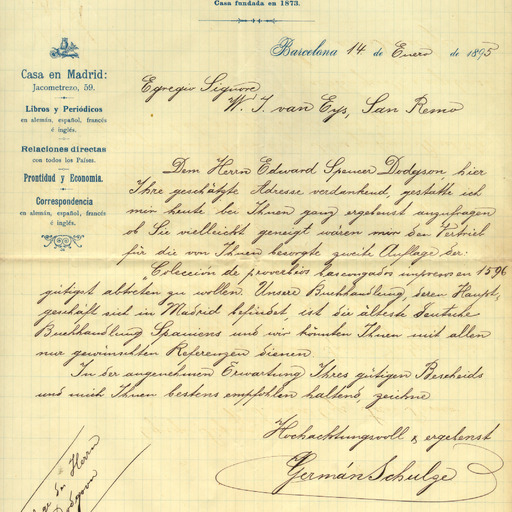 Casa fundada en 1873.
Barcelona 14 de Enero de 1895
Casa en Madrid:
Jacometrezo, 59.
Libros y Periódicos
en alemán, español, francés
é inglés.
Relaciones directas
con todos los Países.
Prontidud y Economía.
Correspondencia
en alemán, español, francés
é inglés.
Egregio Signore
W. J. van Eys, San Remo
Dem Herrn Edward Spencer Dodgson, hier
Ihre geschätzte Adresse verdankend, gestatte ich
mir heute bei Ihnen ganz ergebenst anzufragen
ob Sie vielleicht geneigt wären mir den Vertrieb
für die von Ihnen besorgte zweite Auflage der:
"Colección de proverbios bascongados impresos en 1596
gütigst abtreten zu wollen. Unsere Buchhandlung, deren Haupt-
geschäft sich in Madrid befindet, ist die älteste deutsche
Buchhandlung Spaniens und wir könnten Ihnen mit allen
nur gewünschten Referenzen dienen.
In der angenehmen Erwartung Ihres gütigen Bescheids
und mich Ihnen bestens empfohlen haltend, zeichne
Hochachtungsvoll & ergebenst
Germán Schulze
de Herrn
Dodgson